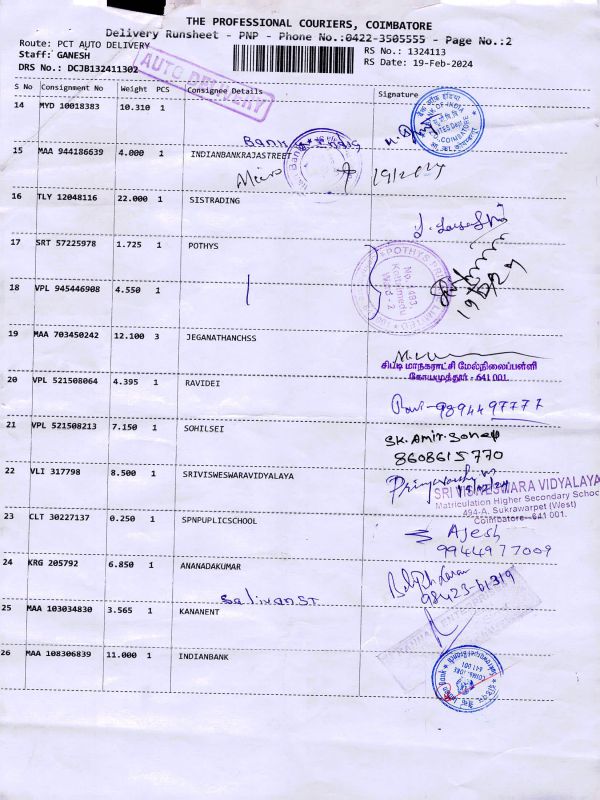 THE PROFESSIONAL COURIERS, COIMBATORE
Delivery Runsheet - PNP - Phone No.:0422-3505555 - Page No.:2
Route: PCT AUTO DELIVERY RS No.: 1324113
Staff: GANESH RS Date: 19-Feb-2024
DRS No.: DCJB132411302
AUTO DELIVERY
S No Consignment No Weight PCS Consignee Details Signature
14 MYD 10018383 10.310 1
BANK OF INDIA
COIMBATORE
Bank
15 MAA 944186639 4.000 1 INDIANBANKRAJASTREET
19/2024
16 TLY 12048116 22.000 1 SISTRADING
17 SRT 57225978 1.725 1 POTHYS
POTHYS
18 VPL 945446908 4.550 1
19 MAA 703450242 12.100 3 JEGANATHANCHSS
சிபிடி மாநகராட்சி மேல்நிலைப்பள்ளி
கோயமுத்தூர் - 641 001.
20 VPL 521508064 4.395 1 RAVIDEI
Ravi - 9894497777
21 VPL 521508213 7.150 1 SOHILSEI
SK. Amir. Sohep
8608615770
22 VLI 317798 8.500 1 SRIVISWESWARAVIDYALAYA
SRI VISHESWARA VIDYALAYA
Matriculation Higher Secondary School
494-A, Sukrawarpet (West)
Coimbatore - 641 001.
23 CLT 30227137 0.250 1 SPNPUPLICSCHOOL
Ajesh
9944977009
24 KRG 205792 6.850 1 ANANADAKUMAR
98423-61319
Salivan ST.
25 MAA 103034830 3.565 1 KANANENT
26 MAA 108306839 11.000 1 INDIANBANK
641 001